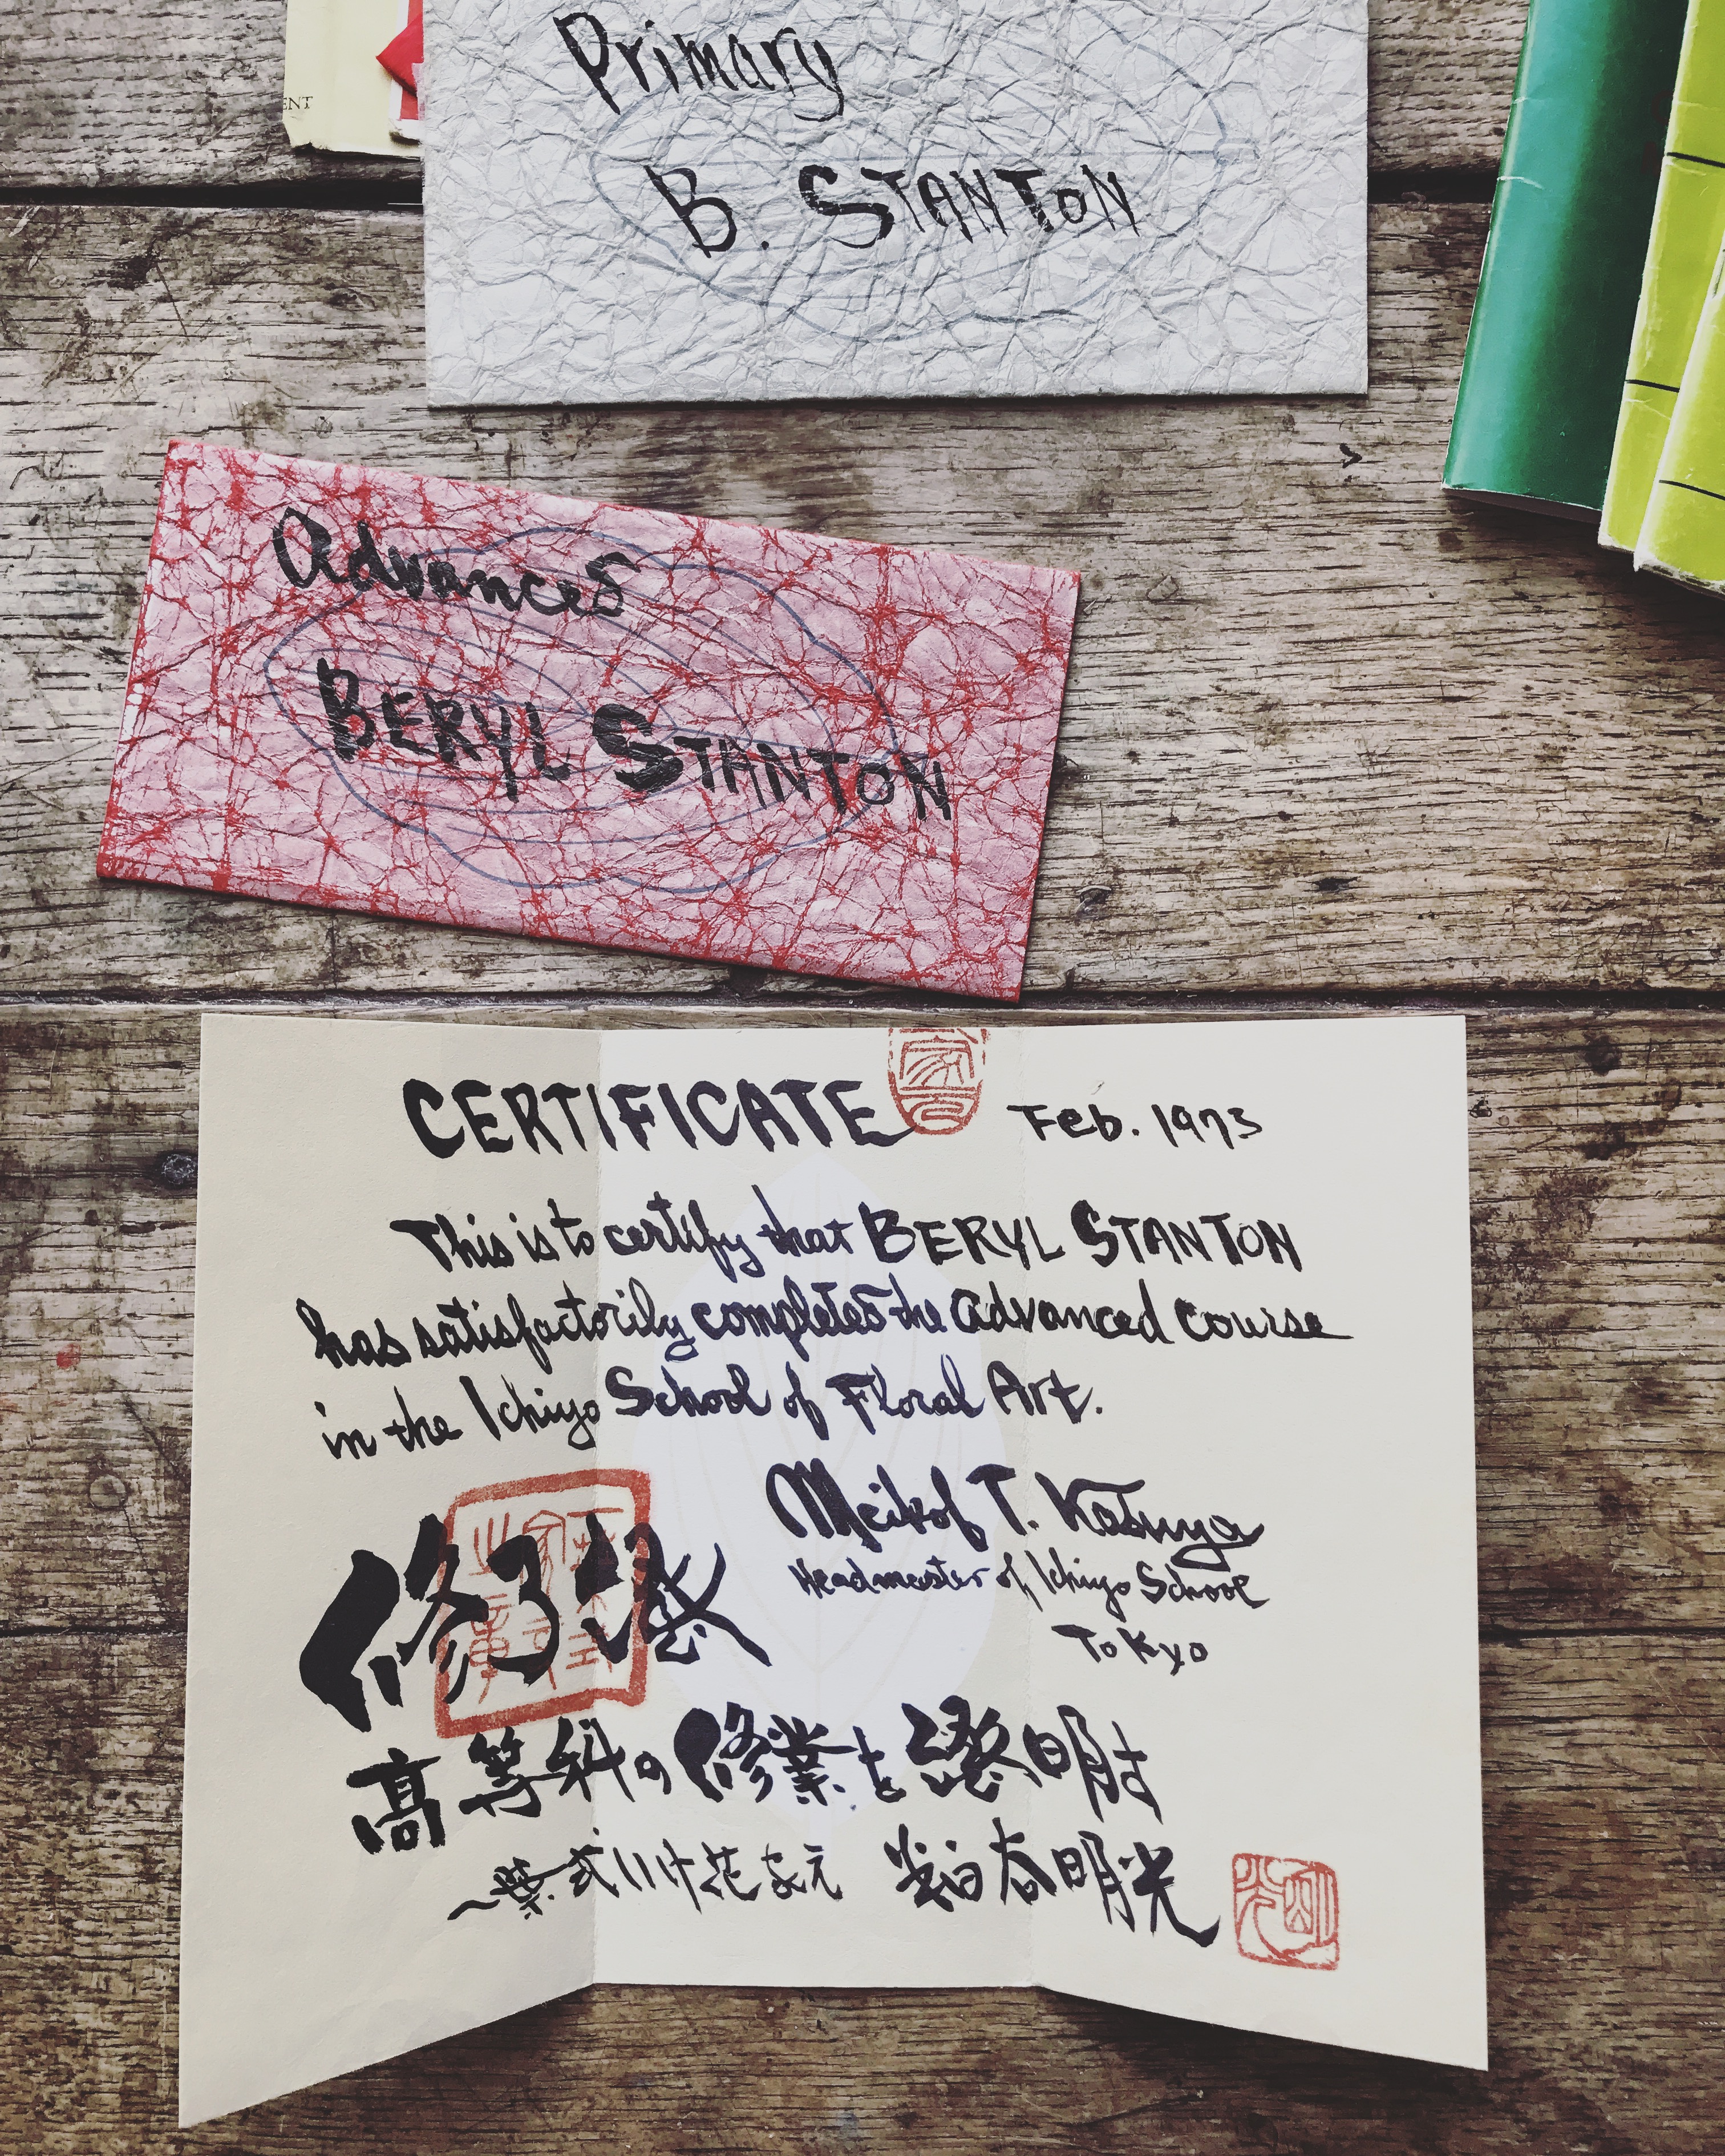 ENT
Primary
B. STANTON
Advanced
BERYL STANTON
CERTIFICATE
Feb. 1973
This is to certify that BERYL STANTON
has satisfactorily completed the Advanced Course
in the Ichiyo School of Floral Art.
Meikof T. Kasuya
Headmaster of Ichiyo School
Tokyo
修了證
高等科の修業を證明す
一葉式いけ花家元 粕谷明光
明光